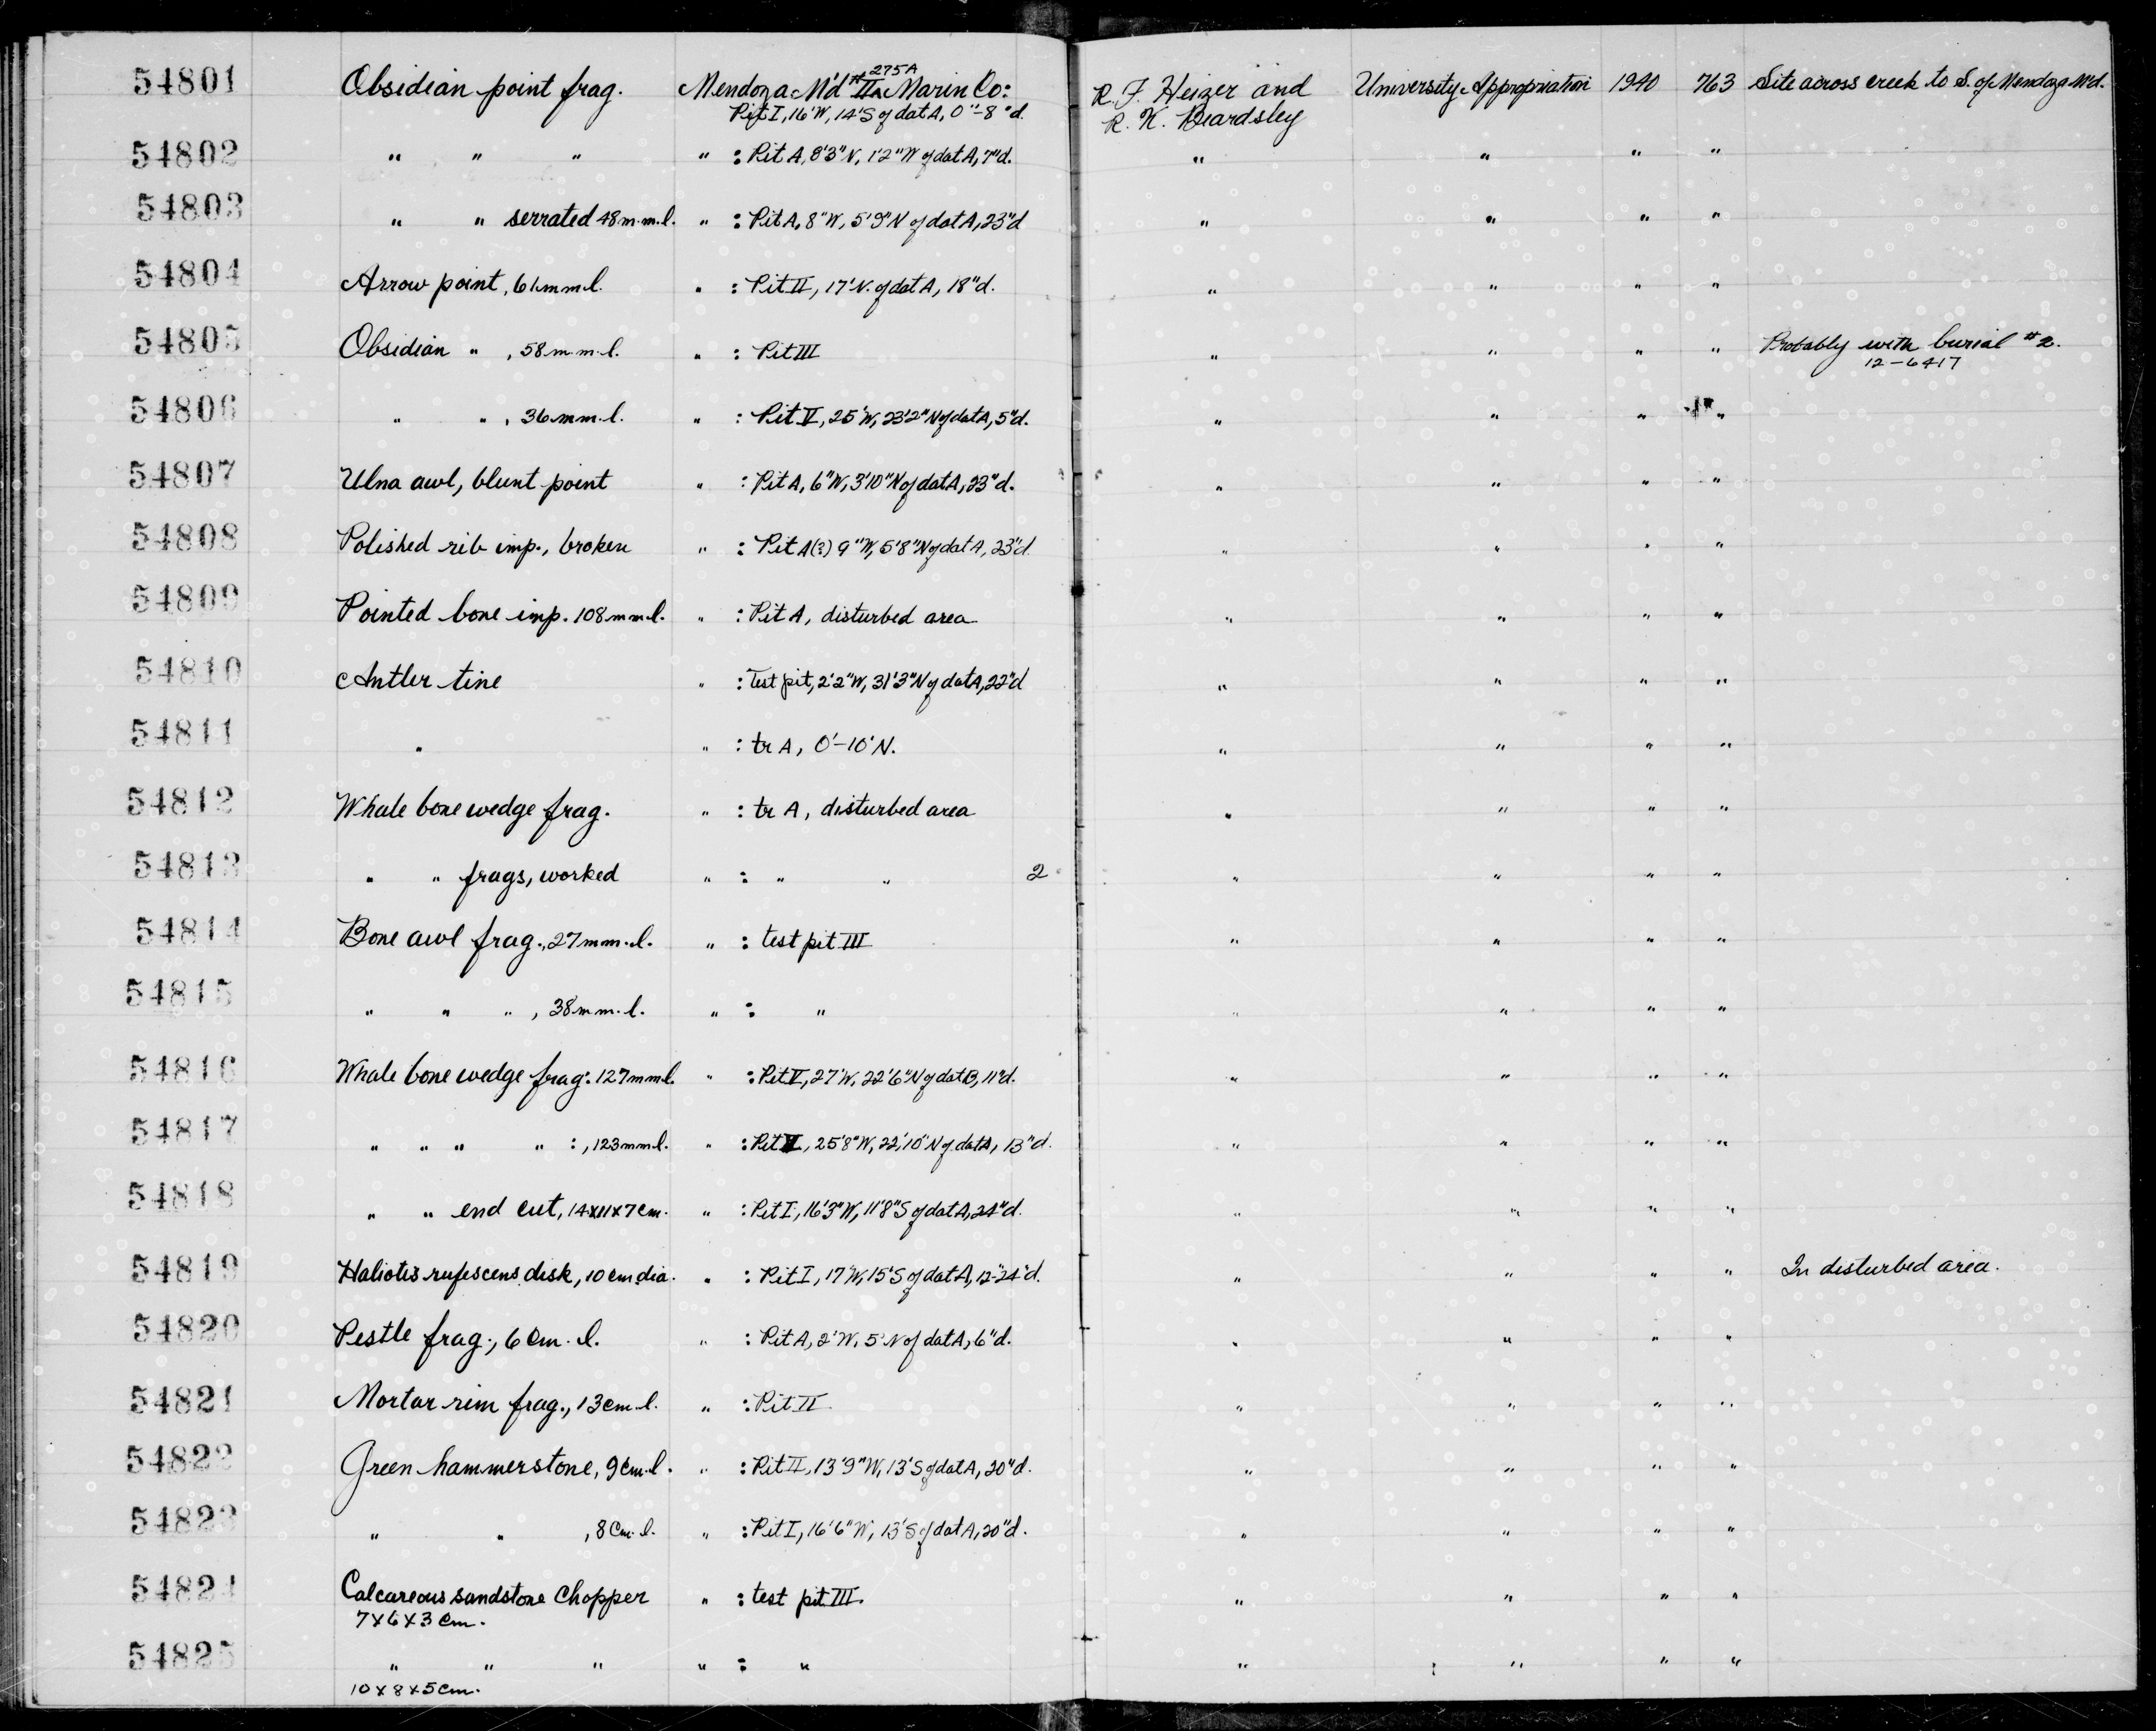 54801 Obsidian point frag. Mendoza M'd #II Marin Co: 275A R. F. Heizer and University Appropriation 1940 763 Site across creek to S. of Mendoza M'd.
Pit I, 16'W, 14'S of dat A, 0"-8"d. R. K. Beardsley
54802 " " " " : Pit A, 8'3"N, 1'2"W of dat A, 7"d. " " " "
54803 " " serrated 48 m.m. l. " : Pit A, 8"W, 5'9"N of dat A, 23"d " " " "
54804 Arrow point, 61 mm l. " : Pit II, 17'N. of dat A, 18"d. " " " "
54805 Obsidian " , 58 m.m. l. " : Pit III " " " " Probably with burial #2.
12-6417
54806 " " , 36 mm. l. " : Pit V, 25'W, 23'2"N of dat A, 5"d. " " " "
54807 Ulna awl, blunt point " : Pit A, 6"W, 3'10"N of dat A, 23"d. " " " "
54808 Polished rib imp., broken " : Pit A(?) 9"W, 5'8"N of dat A, 23"d. " " " "
54809 Pointed bone imp. 108 mm. l. " : Pit A, disturbed area " " " "
54810 Antler tine " : Test pit, 2'2"W, 31'3"N of dat A, 22"d " " " "
54811 " " : tr A, 0'-10'N. " " " "
54812 Whale bone wedge frag. " : tr A, disturbed area " " " "
54813 " " frags, worked " : " " 2 " " " "
54814 Bone awl frag., 27 mm. l. " : test pit III " " " "
54815 " " " , 38 mm. l. " : " " " " "
54816 Whale bone wedge frag. 127 mm l. " : Pit V, 27'W, 22'6"N of dat B, 11"d. " " " "
54817 " " " " : , 123 mm l. " : Pit V, 25'8"W, 22'10"N of dat A, 13"d. " " " "
54818 " " end cut, 14x11x7 cm. " : Pit I, 16'3"W, 11'8"S of dat A, 24"d. " " " "
54819 Haliotis rufescens disk, 10 cm dia. " : Pit I, 17'W, 15'S of dat A, 12-24"d. " " " " In disturbed area.
54820 Pestle frag., 6 cm. l. " : Pit A, 2'W, 5'N of dat A, 6"d. " " " "
54821 Mortar rim frag., 13 cm. l. " : Pit II " " " "
54822 Green hammerstone, 9 cm. l. " : Pit II, 13'9"W, 13'S of dat A, 20"d. " " " "
54823 " " , 8 cm. l. " : Pit I, 16'6"W, 13'S of dat A, 20"d. " " " "
54824 Calcareous sandstone chopper " : test pit III. " " " "
7x6x3 cm.
54825 " " " " : " " " " "
10x8x5 cm.